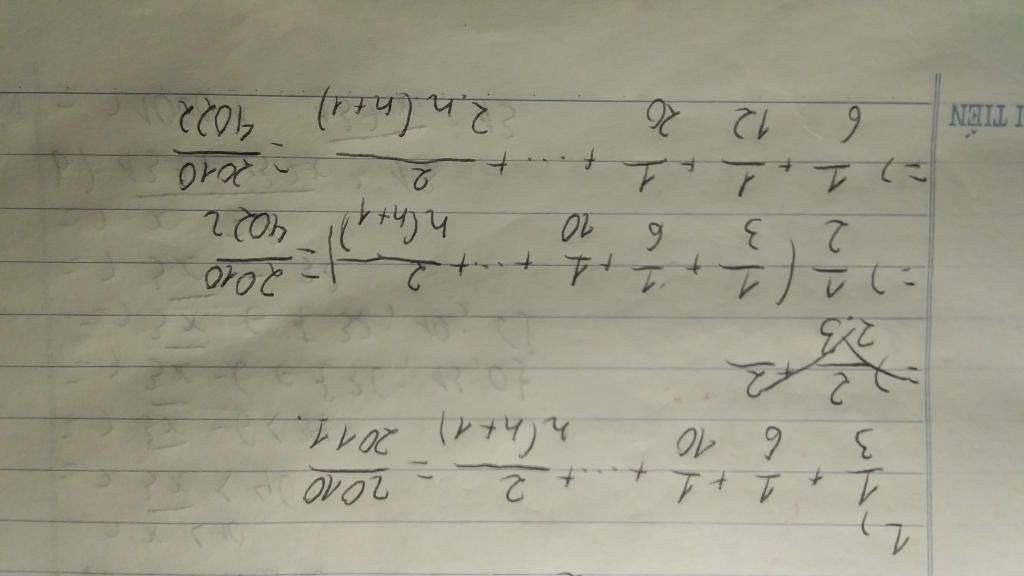 1)
1/3 + 1/6 + 1/10 + ... + 2/n(n+1) = 2010/2011.
=> 2/2.3 + 2
=> 1/2 (1/3 + 1/6 + 1/10 + ... + 2/n(n+1)) = 2010/4022
I TIẾN
=> 1/6 + 1/12 + 1/20 + ... + 2/2.n(n+1) = 2010/4022